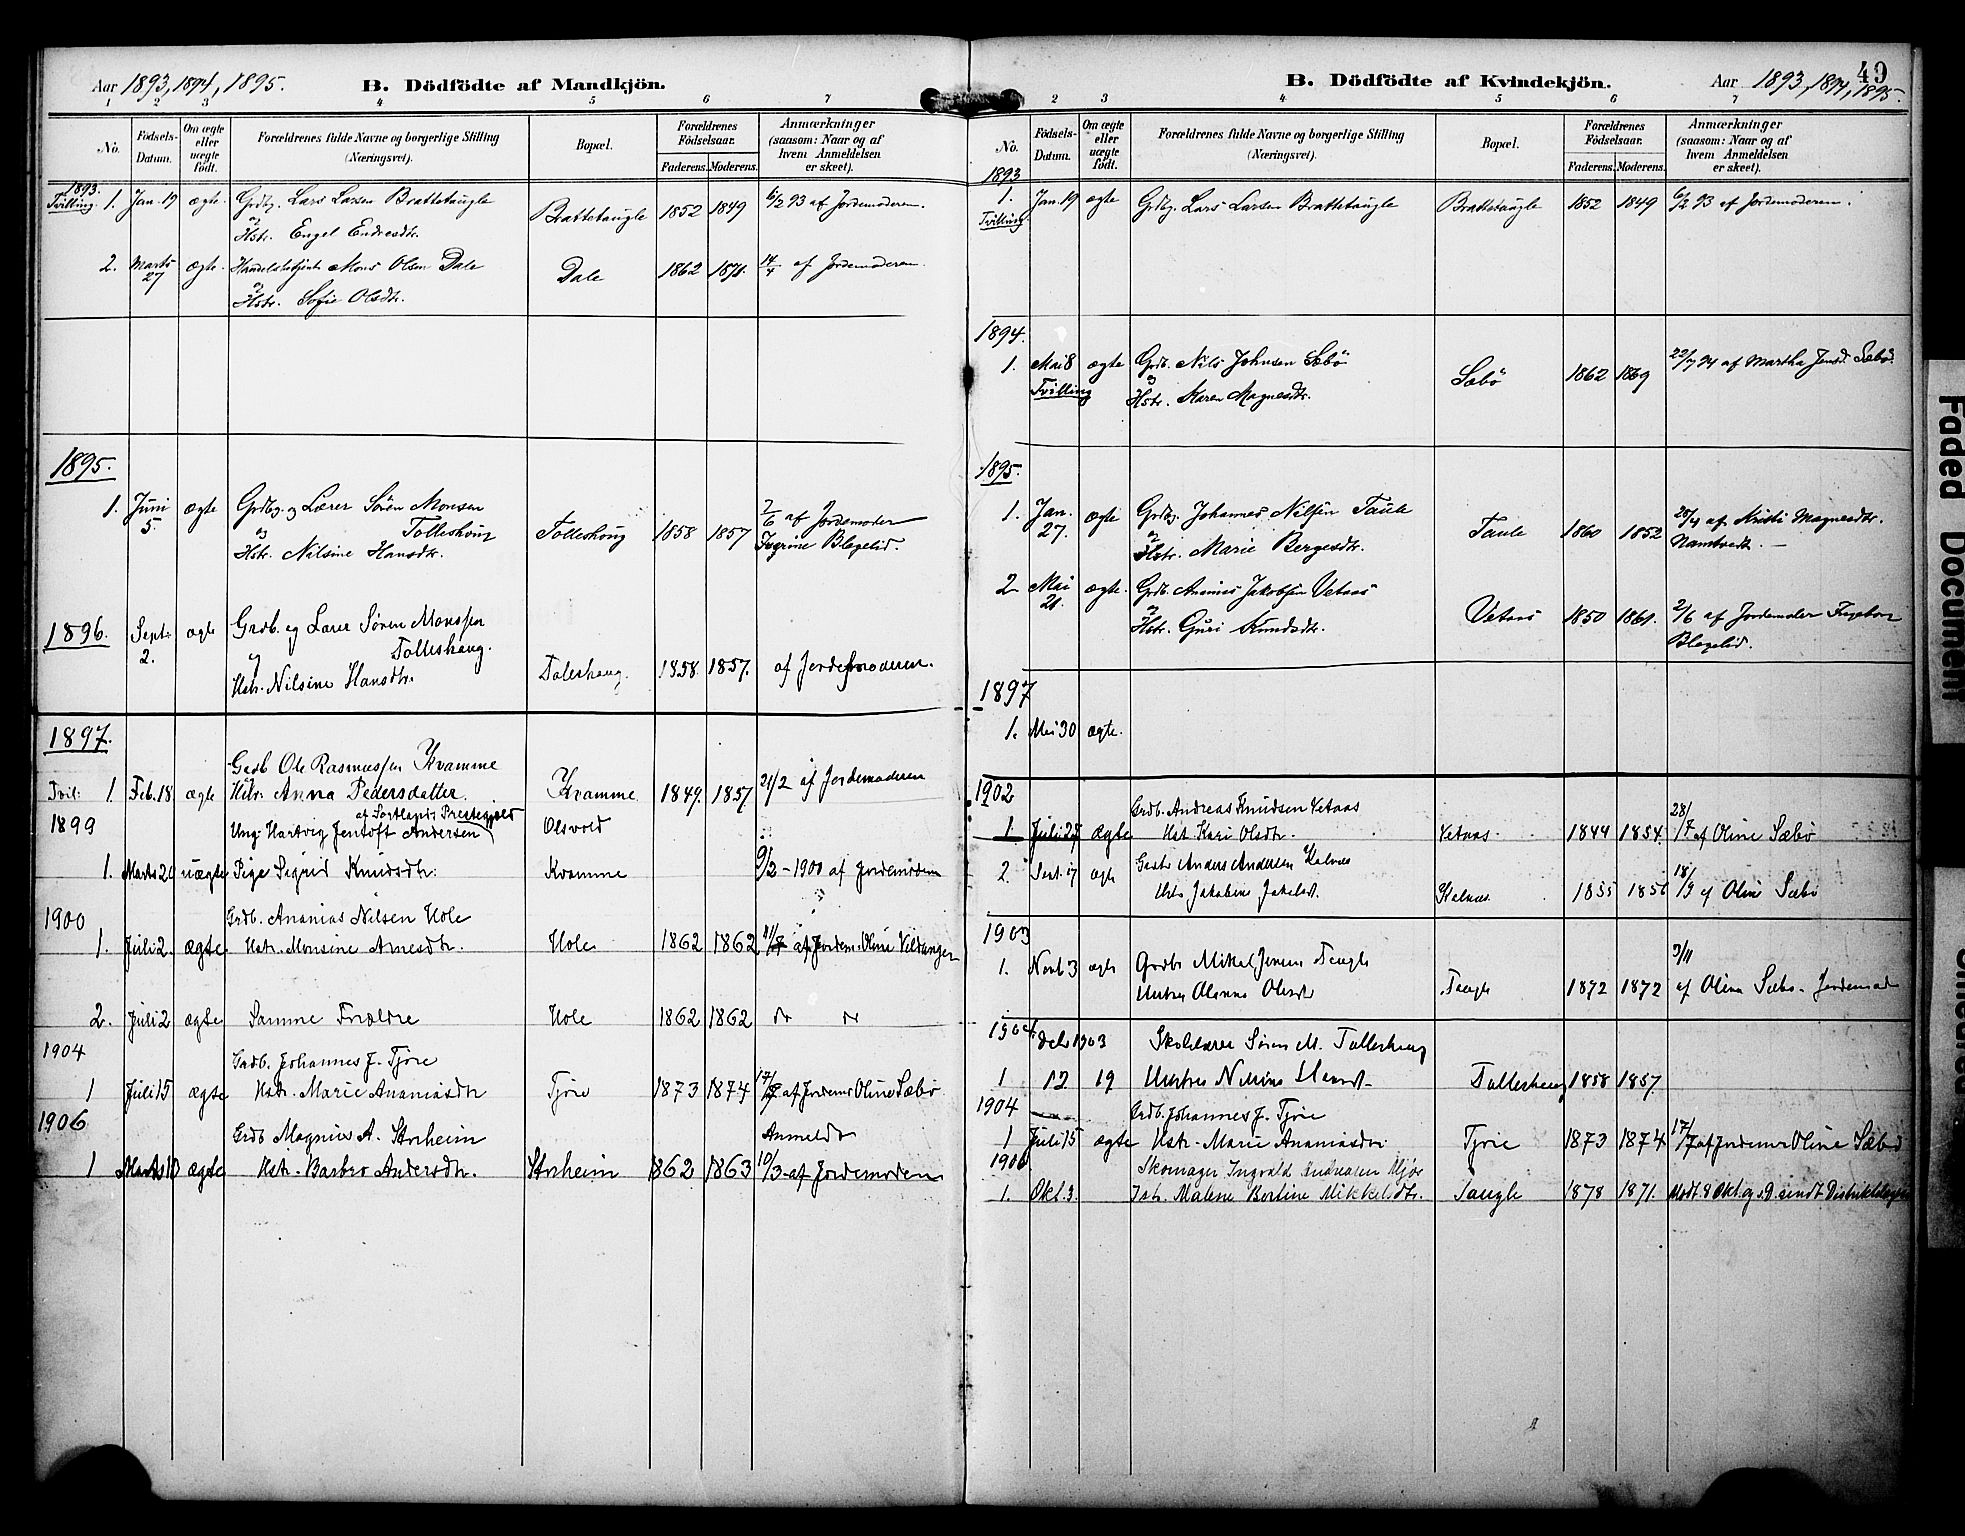 Aar 1893, 1894, 1895. B. Dödfödte af Mandkjön.
1 2 3 4 5 6 7
No. Födsels-Datum. Om ægte eller uægte født. Forældrenes fulde Navne og borgerlige Stilling (Næringsvei). Bopæl. Forældrenes Födselsaar. Faderens. Moderens. Anmærkninger (saasom: Naar og af hvem Anmeldelsen er skeet).
1893.
Tvilling. 1. Jan. 19 ægte. Grdbg. Lars Larsen Brattetaugle Brattetaugle 1852 1849 6/2 93 af Jordemoderen.
og
Hstr. Engel Endresdtr.
2. Marts 27 ægte. Handelsbetjent Mons Olsen Dale Dale 1862 1871. 14/4 af Jordemoderen.
og
Hstr. Sofie Olsdtr.
1895.
1. Juni 5. ægte Grdbg. og Lærer Sören Monsen
Tolleshoug Tolleshoug 1858 1857 7/6 af Jordemoder
og
Hstr. Nilsine Hansdtr. Blegelid.
1896. Septr. 2. ægte Grdb. og Lærer Sören Monssen
Tolleshaug.
og
Hstr. Nilsine Hansdtr. Toleshaug. 1858. 1857. af Jordemoderen.
1897.
Grdb. Ole Rasmussen Kvamme
Tvil: 1. Feb. 18 ægte Hstr. Anna Pedersdatter. Kvamme 1849. 1857 21/2 af Jordemoderen
af Sortlands Prestegjeld
1899 Ung. Hartvig Jentoft Andersen Olsvold
1. Marts 20 uægte Pige Sigrid Knudsdtr. Kvamme 9/2 - 1900 af Jordemodern
1900 Grdb. Ananias Nilsen Hole
1. Juli 2. ægte Hstr. Monsine Arnesdtr. Hole 1862 1862 11/7 af Jordem. Oline Veldanger
2. Juli 2 ægte Samme Forældre Hole 1862 1862
1904 Grdb. Johannes J. Tjore
1 Juli 15 ægte Hstr. Marie Ananiasdtr Tjore 1873 1874 17/7 af Jordemr Oline Sæbö
1906 Grdb Magnus A. Storheim Anmeldt
1 Marts 10 ægte Hstr. Barbro Andersdtr. Storheim 1862 1863 10/3 af Jordemodern
B. Dödfödte af Kvindekjön. Aar 1893, 1894, 1895. 49
2 3 4 5 6 7
No. Födsels-Datum. Om ægte eller uægte født. Forældrenes fulde Navne og borgerlige Stilling (Næringsvei). Bopæl. Forældrenes Födselsaar. Faderens. Moderens. Anmærkninger (saasom: Naar og af hvem Anmeldelsen er skeet).
1893
1. Jan. 19 ægte Grdbg. Lars Larsen Brattetaugle Brattetaugle 1852 1849 6/2 93 af Jordemoderen.
Tvilling
1894.
1. Mai 8 ægte Grdb. Nils Johnsen Sæbö Sæbö 1862 1869 22/7 94 af Martha Jensd. Sæbö.
Tvilling og
Hstr. Karen Magnesdtr.
1895.
1. Jan. 27. ægte Grdbg. Johannes Nilsen Taule Taule 1860 1852 28/4 af Kristi Magnesdtr.
og
Hstr. Marie Bergesdtr. Namtvedt. -
2 Mai 21. ægte. Grdb. Ananias Jakobsen Vetaas Vetaas 1850 1861. 2/6 af Jordemoder Ingeborg
og
Hstr. Guri Knudsdtr. Blegelid.
1897
1. Mai 30 ægte.
1902 Grdb. Andreas Knudsen Vetaas
1 Juli 27 ægte Hst. Kari Olsdtr. Vetaas 1844 1854. 28/7 af Oline Sæbö
2. Sept. 17 ægte Anders Andersen Kalnæs
Jakobine Kalnæs 1855 1856 18/9 af Oline Sæbö
1903
1. Novb 3 ægte Grdbr Mikkel Jensen Taugle
Hustru Olsdtr Taugle 1872 1872 3/11 af Olina Sæbö. Jordemod
1904 Debr 1903 Skolelærer Sören M. Tolleshaug
1 12 19 Hustru Nilsine Hansd. Tolleshaug 1858 1857.
1904 Grdb. Johannes J. Tjore
1 Juli 15 ægte Hstr. Marie Ananiasdtr Tjore 1873 1874 17/7 af Jordemr Oline Sæbö
1906 Skomager Ingvald Andreasen Mjøs
1. Okt. 3. Hstr. Malene Bertine Mikkelsdtr. Taugle 1878 1871. Modt. 8 Okt. og s.D. sendt Distriktslægen
Faded Document